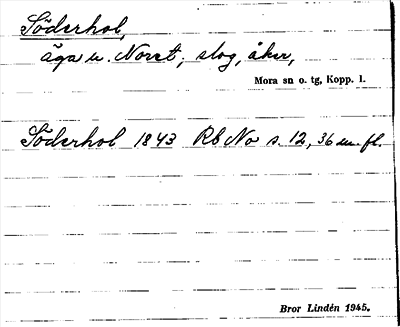 Söderhol,
äga u. Noret; slog, åker,
Mora sn o. tg, Kopp. l.
Söderhol 1843 Rb No s. 12, 36 m. fl.
Bror Lindén 1945.